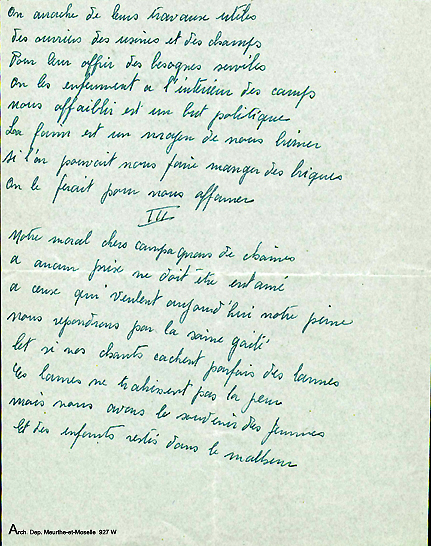 On arrache de leurs travaux utiles
des ouvriers des usines et des champs
Pour leur offrir des besognes serviles
On les enferment à l'intérieur des camps
nous affaiblir est un but politique
La faim est un moyen de nous briser
Si l'on pouvait nous faire manger des briques
On le ferait pour nous affamer
III
Notre moral chers compagnons de chaînes
a aucun prix ne doit être entamé
a ceux qui veulent aujourd'hui notre peine
nous repondrons par la saine gaité
Et si nos chants cachent parfois des larmes
Ces larmes ne trahissent pas la peur
mais nous avons le souvenir des femmes
Et des enfants restés dans le malheur
Arch. Dep. Meurthe-et-Moselle 927 W